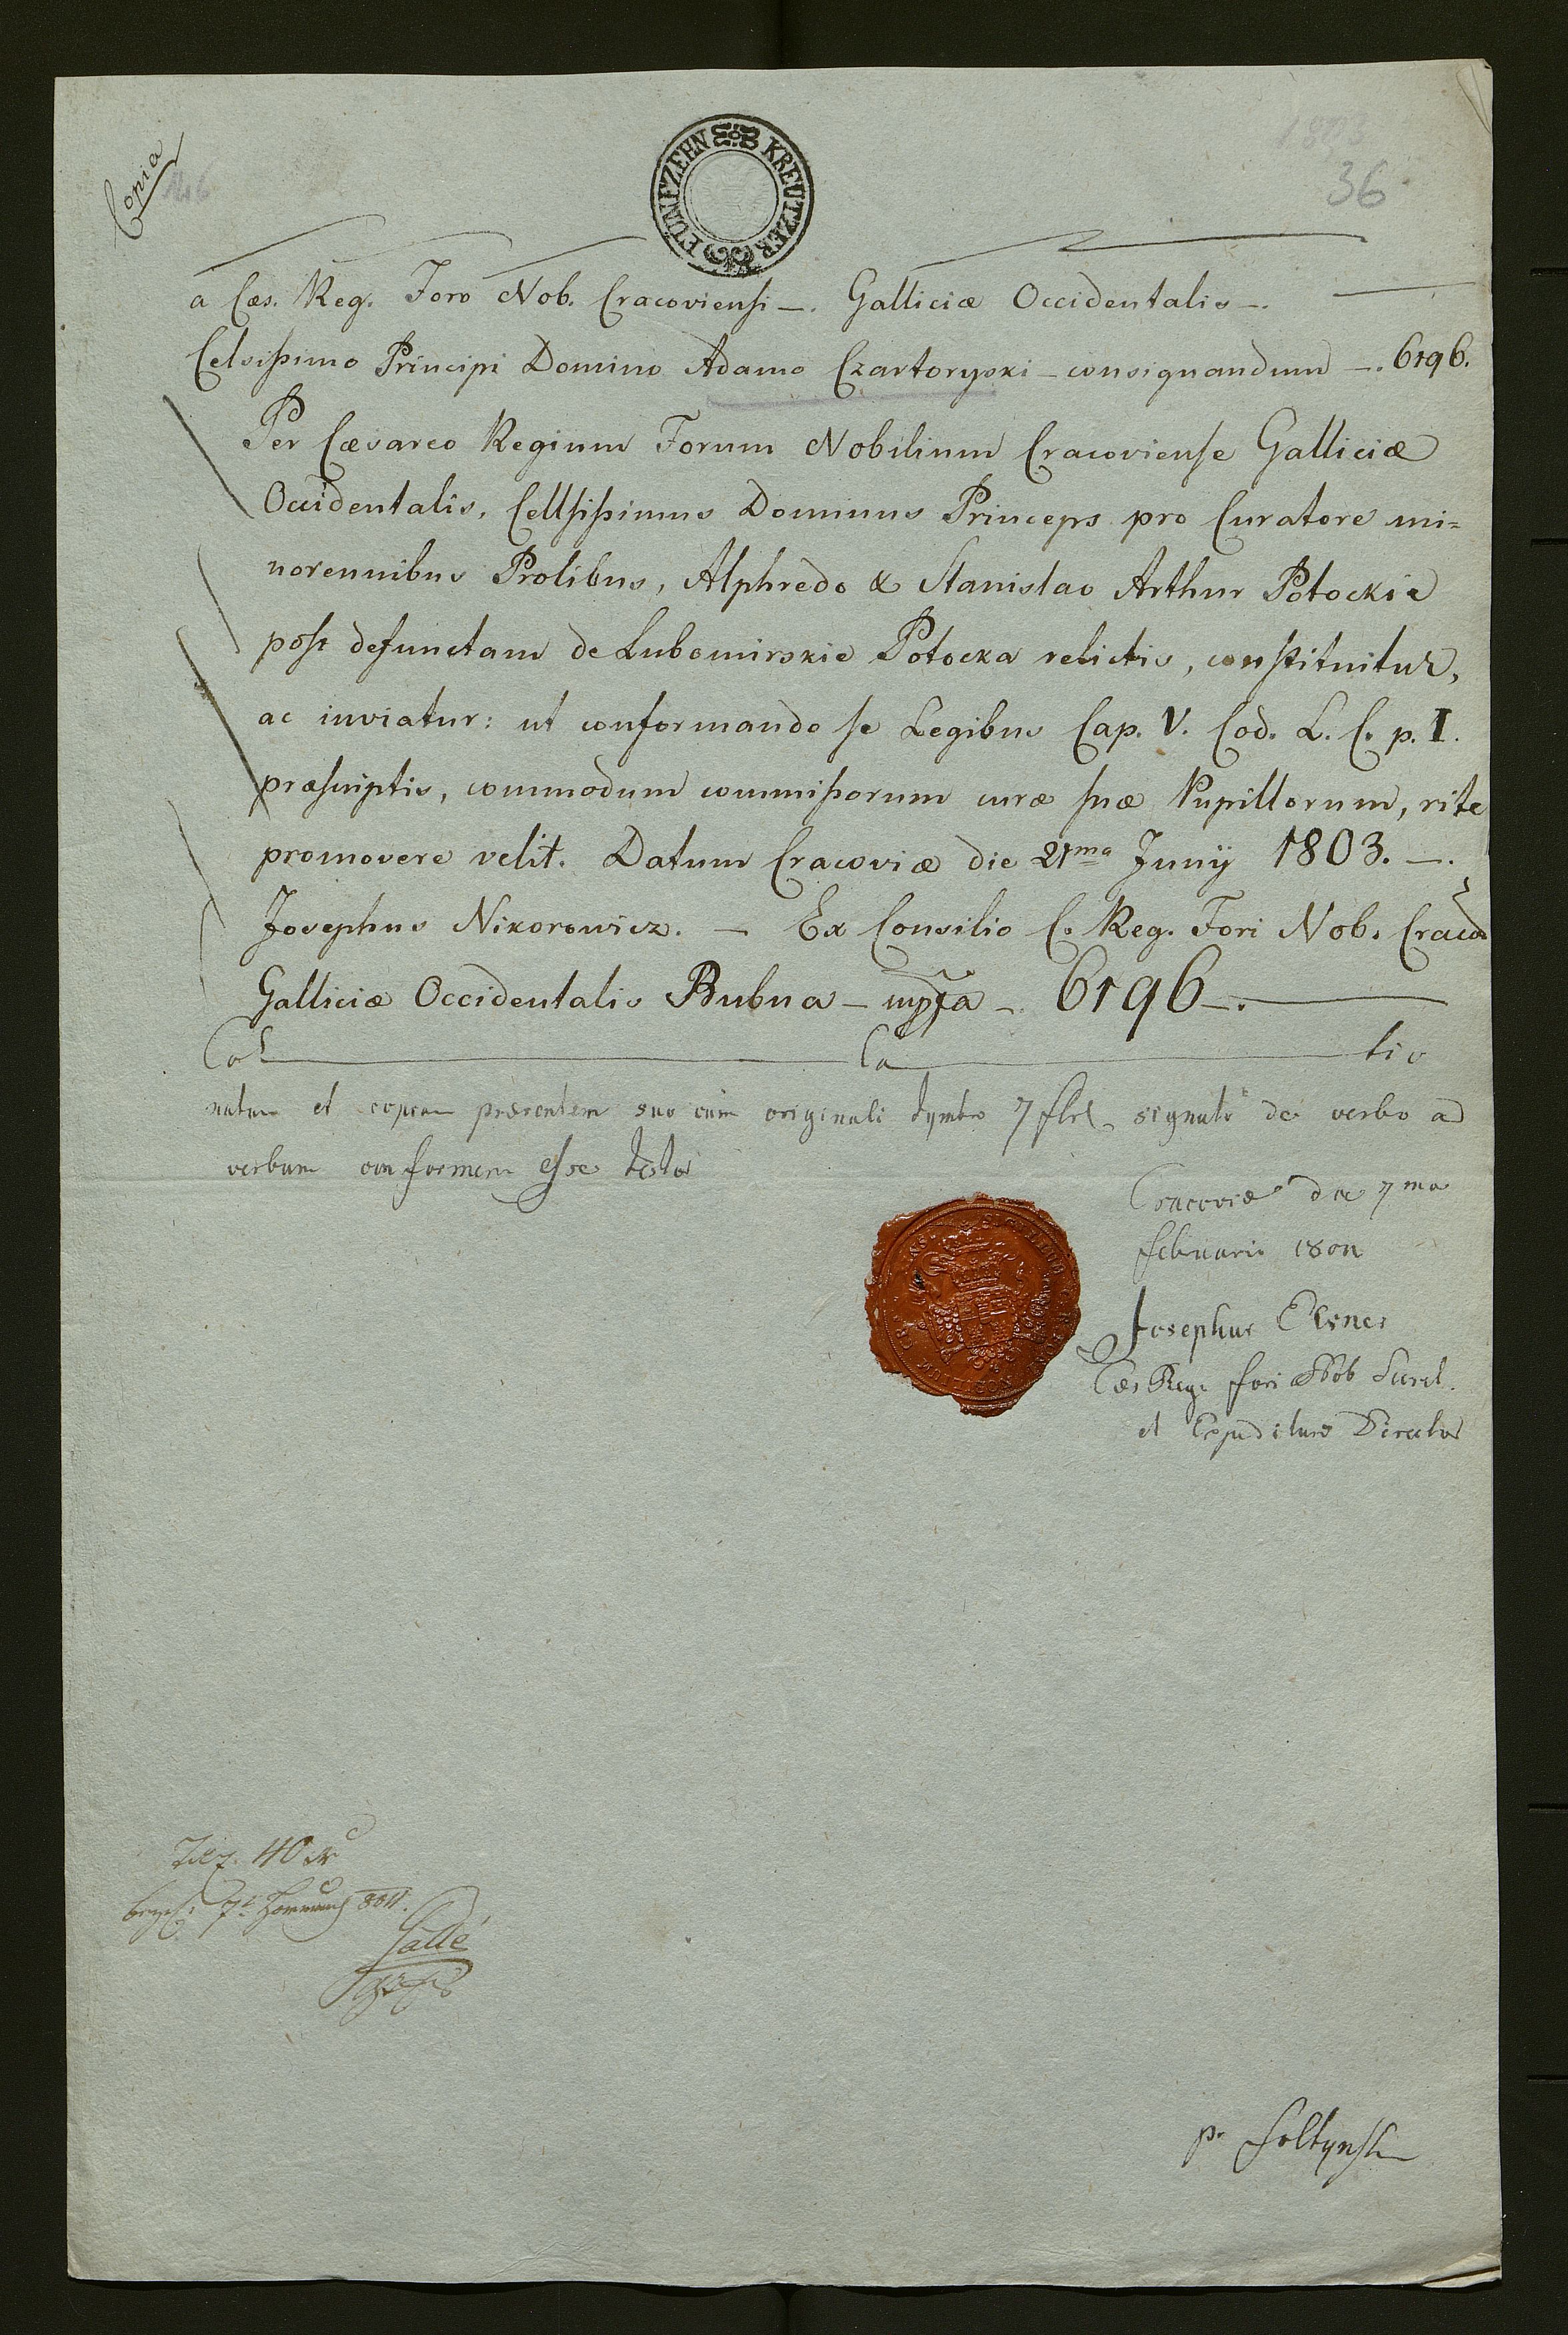 Copia
FÜNFZEHN KREUTZER
36
a Cæs. Reg. Foro Nob. Cracoviensi –. Galliciæ Occidentalis –.
Celsissimo Principi Domino Adamo Czartoryski – consignandum –. 6196.
Per Cæsareo Regium Forum Nobilium Cracoviense Galliciæ
Occidentalis, Cellsissimus Dominus Princeps pro Curatore mi=
norennibus Prolibus, Alphredo & Stanislao Arthur Potockie
post defunctam de Lubomirskie Potocka relictis, constituitur,
ac inviatur: ut conformando se Legibus Cap. V. Cod. L. C. p. I.
præscriptis, commodum commissorum curæ suæ Pupillorum, rite
promovere velit. Datum Cracoviæ die 21ma Junij 1803. –.
Josephus Nikorowicz. – Ex Consilio C. Reg. Fori Nob. Craco
Galliciæ Occidentalis Bubna – mpra – 6196 –.
Col La tio
natam et copiam præsentem suo cum originali tymbro 7 flrl signato de verbo ad
verbum conformem esse testor
Cracoviæ die 7ma
februarii 1804
Josephus Elsner
Cæs Reg. fori Nob
et Expeditura Director
Tax. 40 xr